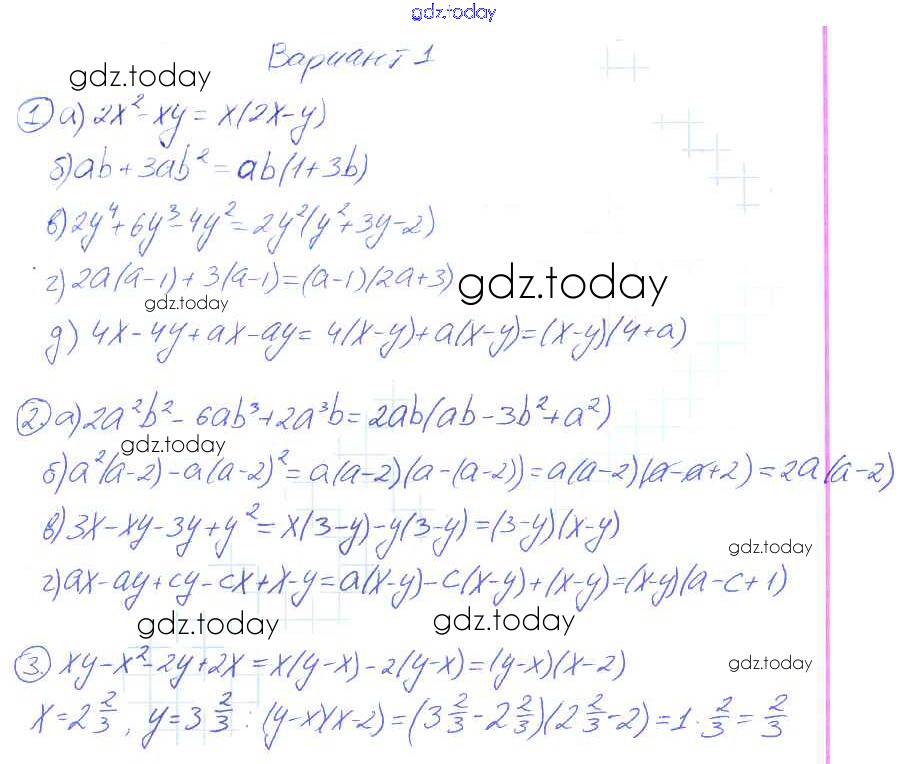 gdz.today
Вариант 1
gdz.today
1 а) 2x² - xy = x(2x-y)
б) ab + 3ab² = ab(1+3b)
в) 2y⁴ + 6y³ - 4y² = 2y²(y² + 3y - 2)
г) 2a(a-1) + 3(a-1) = (a-1)(2a+3)
gdz.today
gdz.today
д) 4x - 4y + ax - ay = 4(x-y) + a(x-y) = (x-y)(4+a)
2. а) 2a²b² - 6ab³ + 2a³b = 2ab(ab - 3b² + a²)
gdz.today
б) a²(a-2) - a(a-2)² = a(a-2)(a-(a-2)) = a(a-2)(a-a+2) = 2a(a-2)
в) 3x - xy - 3y + y² = x(3-y) - y(3-y) = (3-y)(x-y)
gdz.today
г) ax - ay + cy - cx + x - y = a(x-y) - c(x-y) + (x-y) = (x-y)(a-c+1)
gdz.today
gdz.today
3. xy - x² - 2y + 2x = x(y-x) - 2(y-x) = (y-x)(x-2)
gdz.today
x = 2 2/3, y = 3 2/3 : (y-x)(x-2) = (3 2/3 - 2 2/3)(2 2/3 - 2) = 1 · 2/3 = 2/3